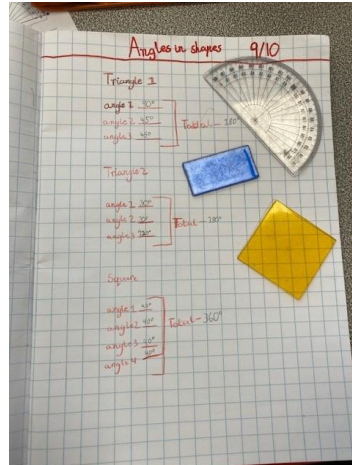 Angles in shapes 9/10
Triangle 1
angle 1 90°
angle 2 45°
angle 3 45°
Total - 180°
Triangle 2
angle 1 30°
angle 2 30°
angle 3 120°
Total - 180°
Square
angle 1 90°
angle 2 90°
angle 3 90°
angle 4 90°
Total - 360°